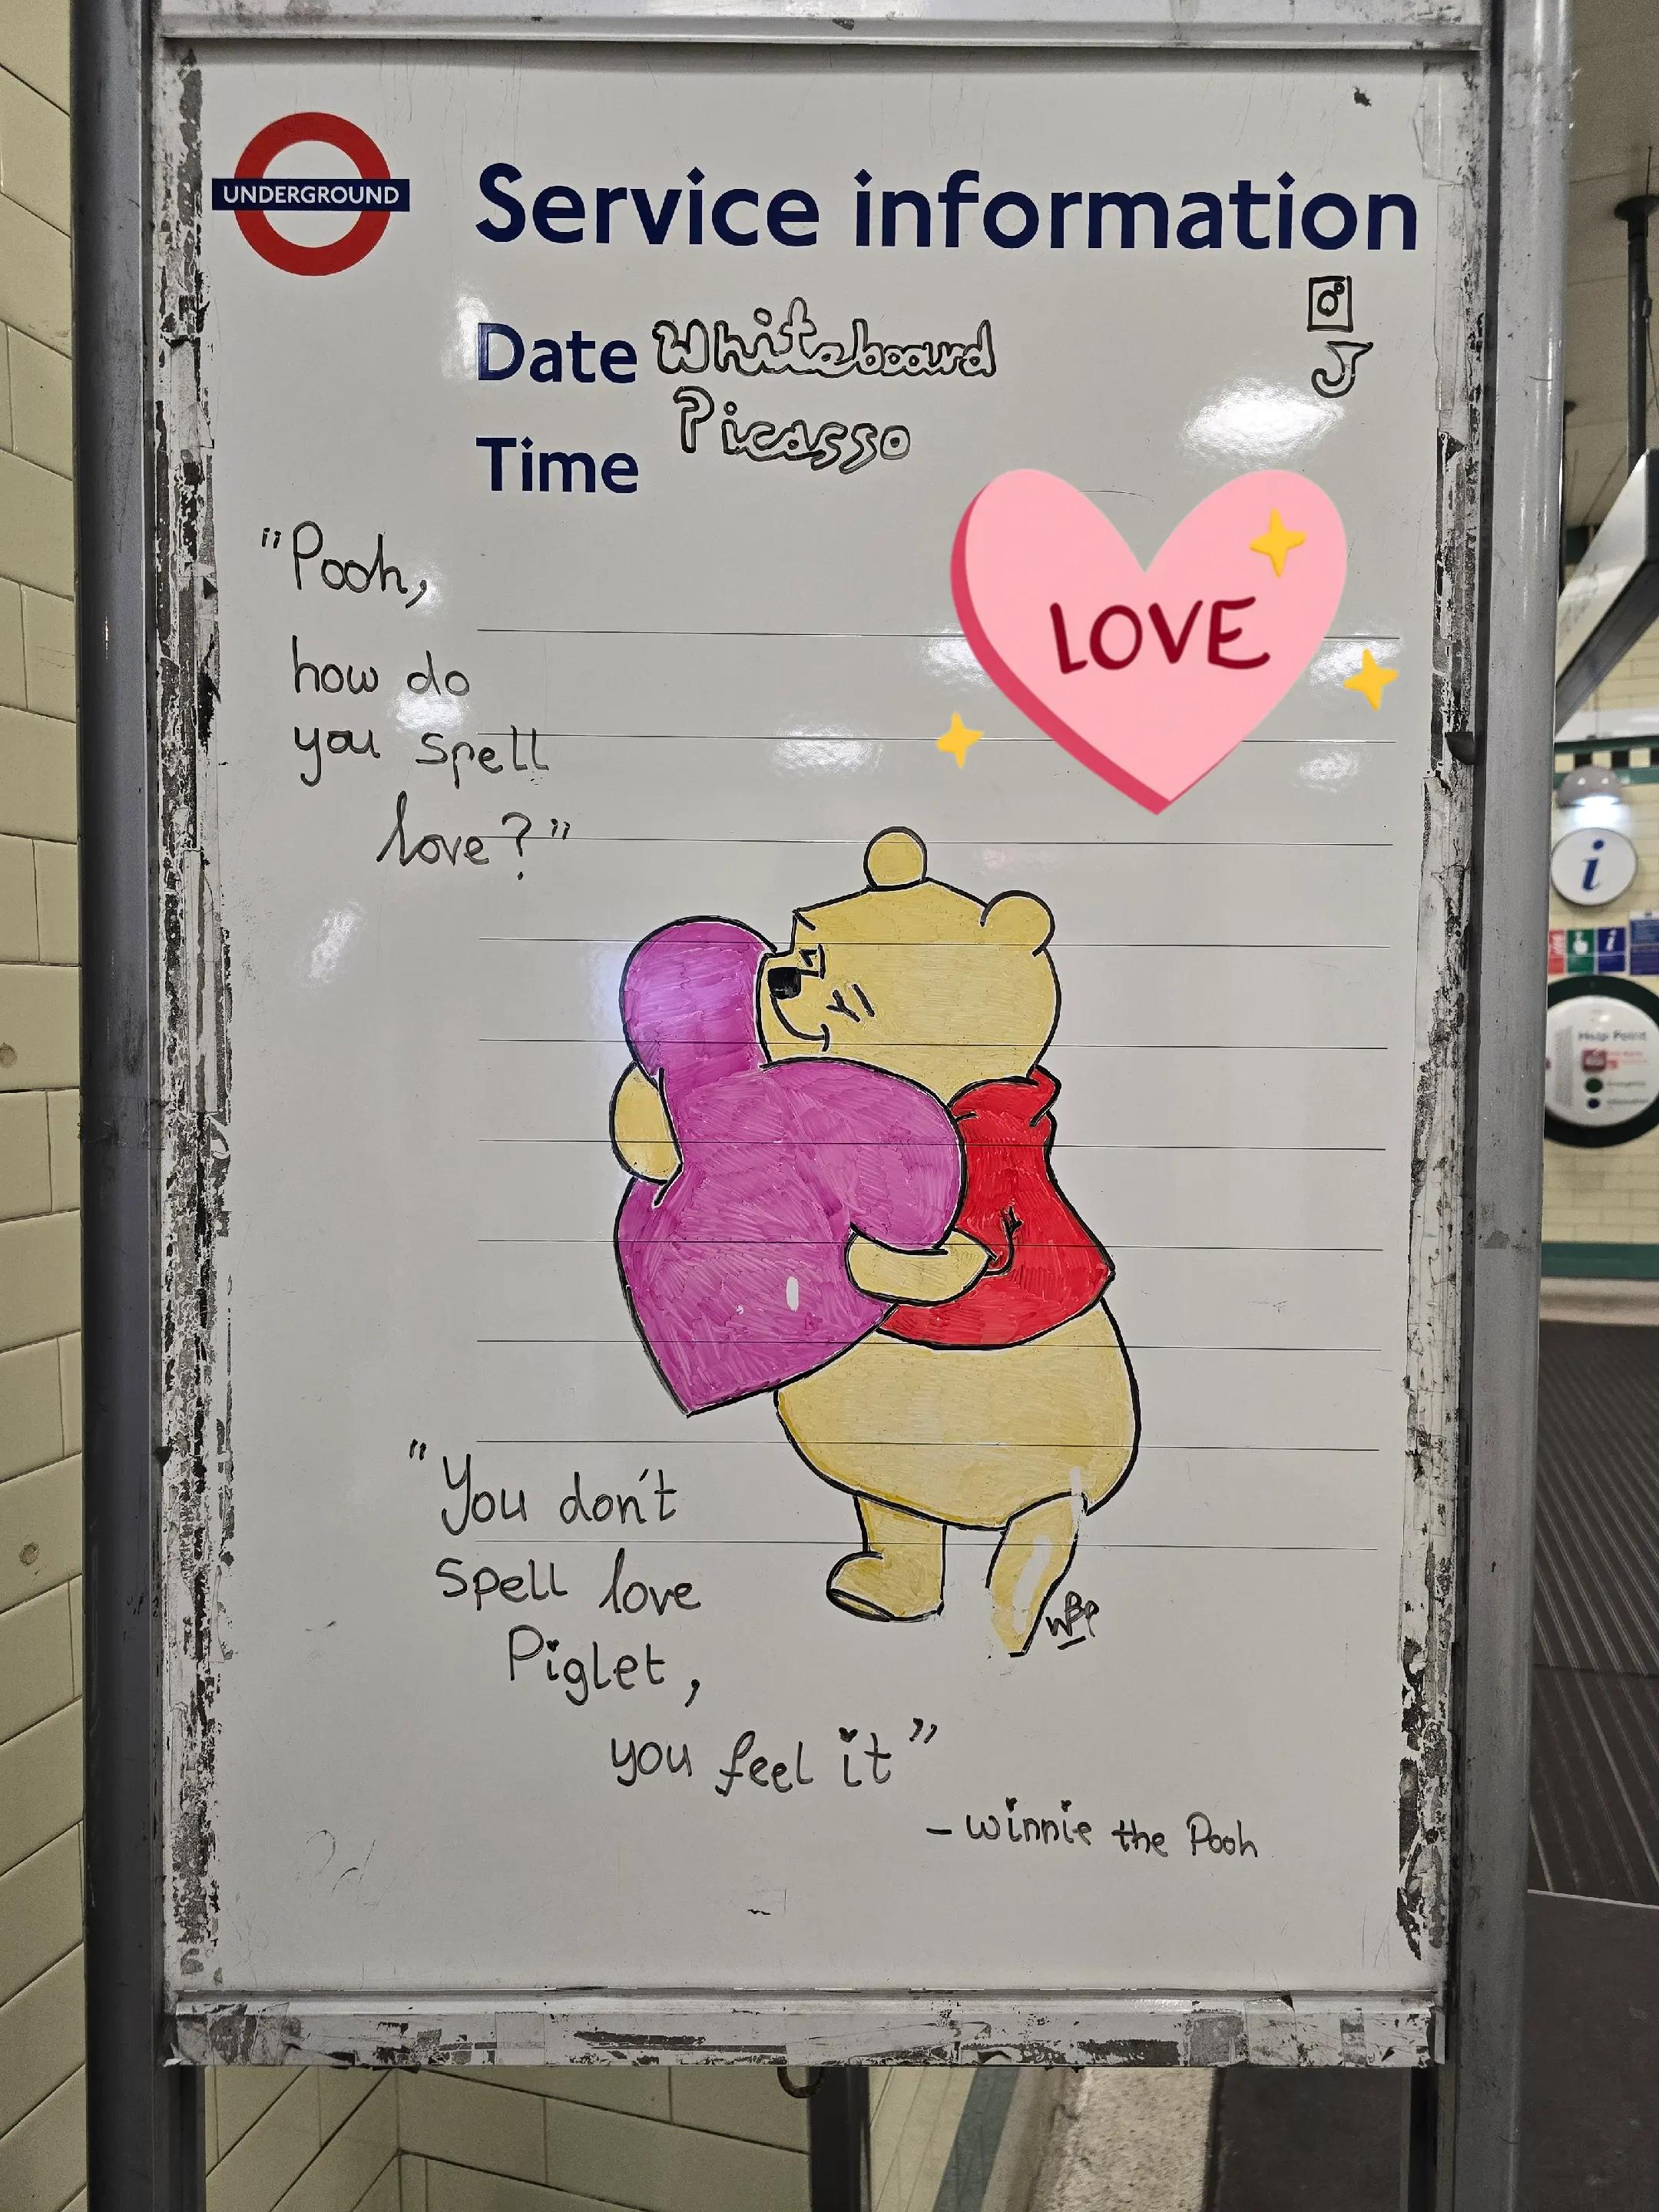 UNDERGROUND
Service information
Date Whiteboard
Picasso
Time
"Pooh,
how do
you spell
love?"
LOVE
"You don't
spell love
Piglet,
you feel it"
WBP
- Winnie the Pooh
i
Help Point